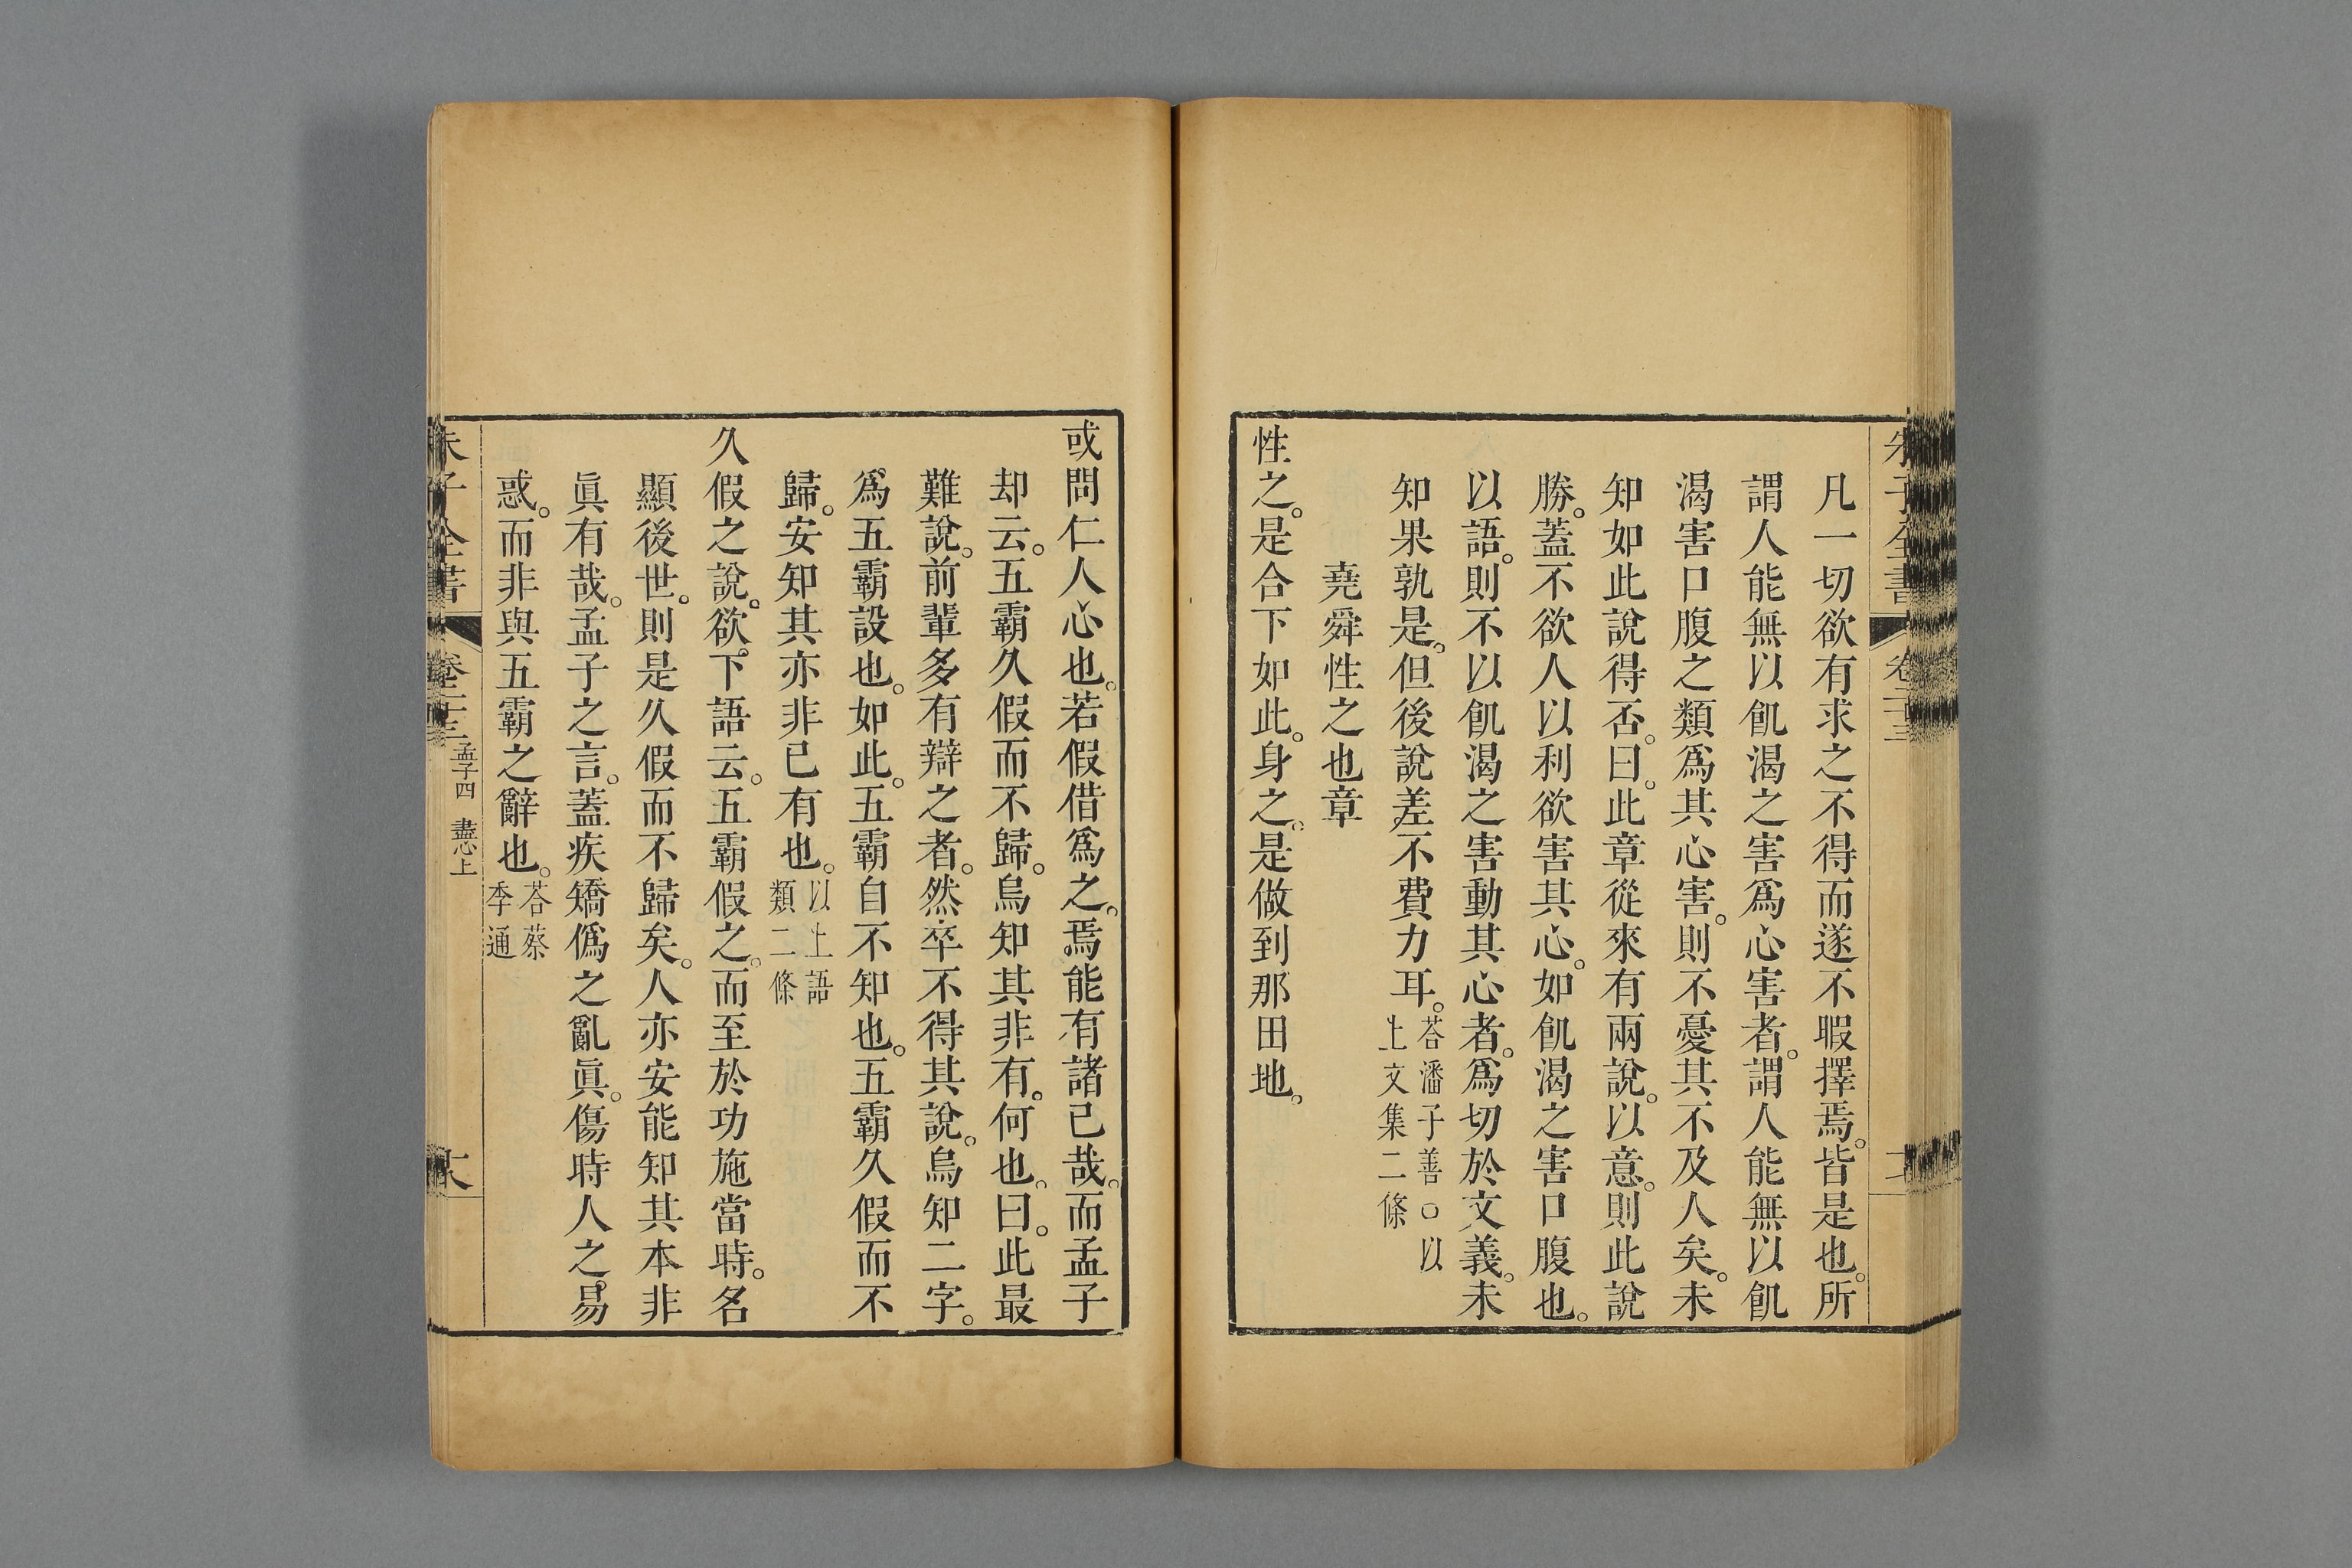 朱子全書 卷二十三
凡一切欲有求之不得而遂不暇擇焉。皆是也。所
謂人能無以飢渴之害爲心害者。謂人能無以飢
渴害口腹之類爲其心害。則不憂其不及人矣。未
知如此說得否。曰。此章從來有兩說。以意。則此說
勝。蓋不欲人以利欲害其心。如飢渴之害口腹也。
以語。則不以飢渴之害動其心者。爲切於文義。未
知果孰是。但後說差不費力耳。荅潘子善○以
上文集二條
堯舜性之也章
性之。是合下如此。身之。是做到那田地。
或問仁人心也。若假借爲之。焉能有諸己哉。而孟子
却云。五霸久假而不歸。烏知其非有。何也。曰。此最
難說。前輩多有辯之者。然卒不得其說。烏知二字。
爲五霸設也。如此。五霸自不知也。五霸久假而不
歸。安知其亦非己有也。以上語
類二條
久假之說。欲。下語云。五霸假之。而至於功施當時。名
顯後世。則是久假而不歸矣。人亦安能知其本非
眞有哉。孟子之言。蓋疾矯僞之亂眞。傷時人之易
惑。而非與五霸之辭也。荅蔡
季通
朱子全書 卷二十三 孟子四 盡心上